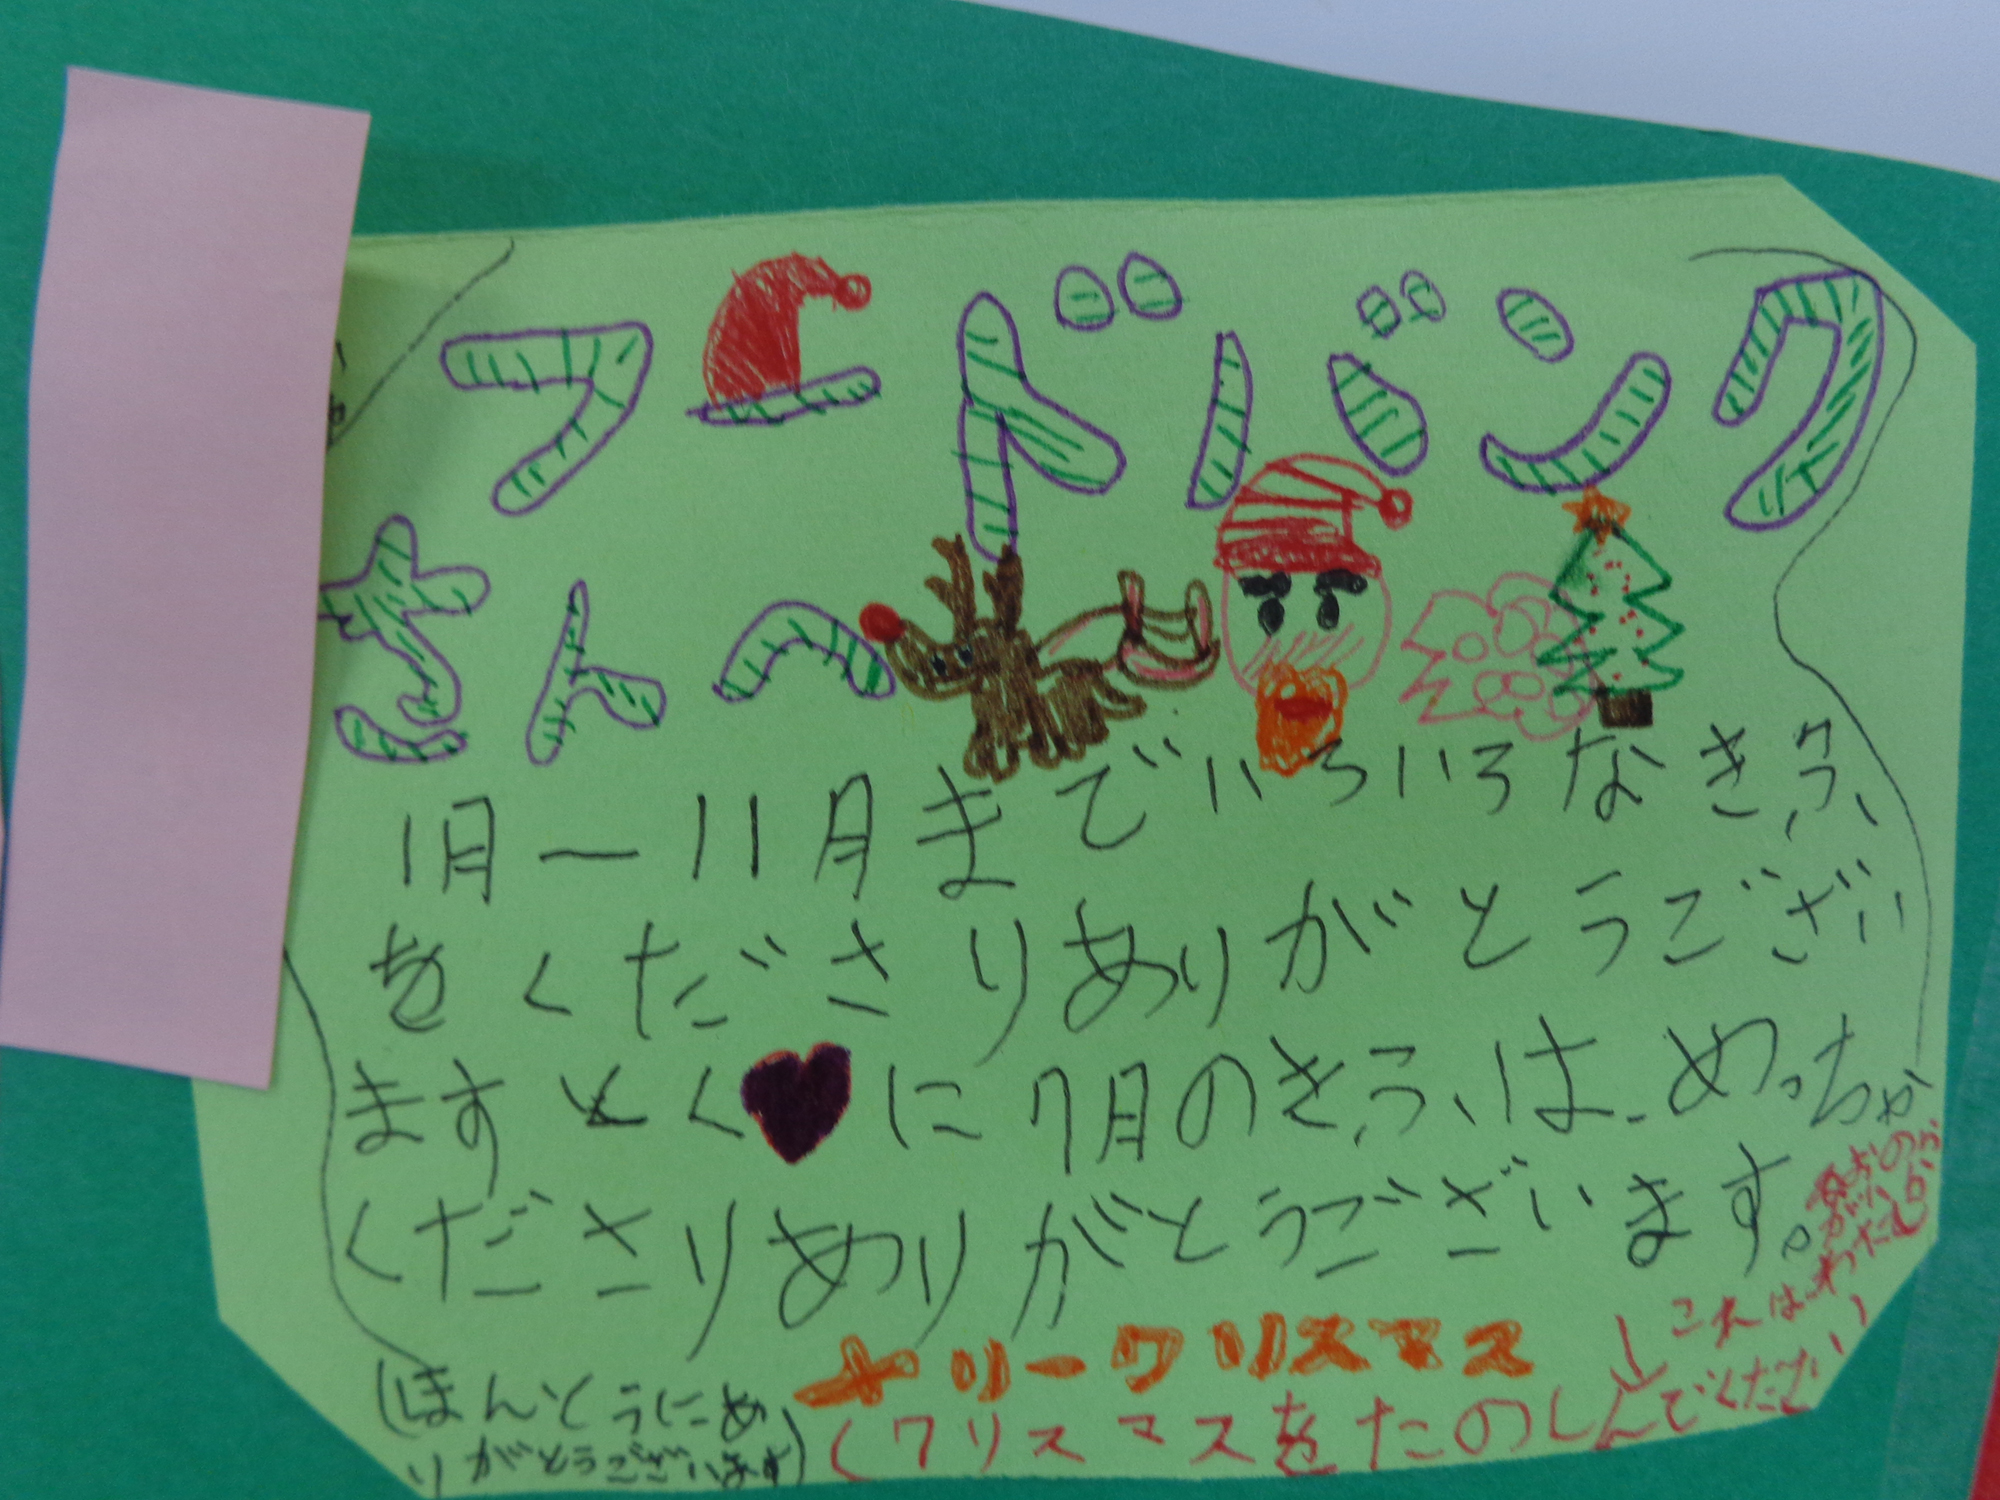 フードバンク
さんへ
1月ー11月までいろいろなきふ
をくださりありがとうござい
ますとくに7月のきふは、めっちゃ
くださりありがとうございます。
(ほんとうにあ
りがとうございます)
メリークリスマス
(クリスマスをたのしんでください
これは、わたし